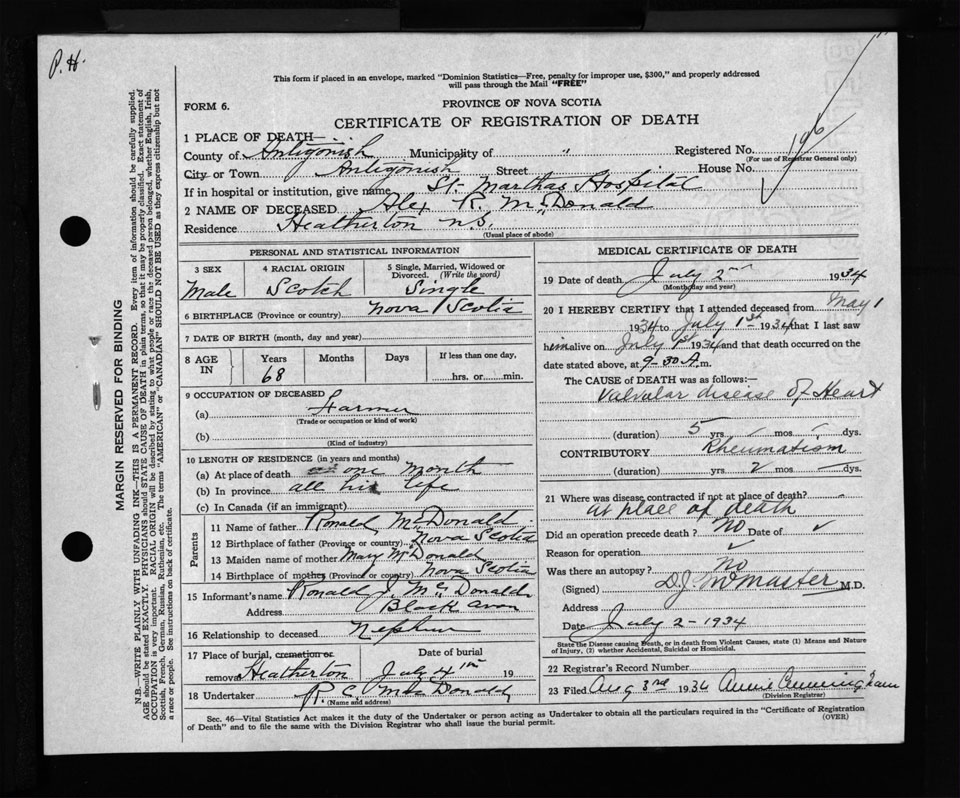 P.H.
This form if placed in an envelope, marked "Dominion Statistics—Free, penalty for improper use, $300," and properly addressed
will pass through the Mail "FREE"
FORM 6.
PROVINCE OF NOVA SCOTIA
CERTIFICATE OF REGISTRATION OF DEATH
1 PLACE OF DEATH—
County of Antigonish Municipality of " Registered No.
(For use of Registrar General only)
196
City or Town Antigonish Street House No.
If in hospital or institution, give name St. Marthas Hospital
2 NAME OF DECEASED Alex R. McDonald
Residence Heatherton N.S.
(Usual place of abode)
PERSONAL AND STATISTICAL INFORMATION
3 SEX 4 RACIAL ORIGIN 5 Single, Married, Widowed or Divorced. (Write the word)
Male Scotch Single
6 BIRTHPLACE (Province or country) Nova Scotia
7 DATE OF BIRTH (month, day and year)
8 AGE IN Years Months Days If less than one day,
68 hrs. or min.
9 OCCUPATION OF DECEASED
(a) Farmer
(Trade or occupation or kind of work)
(b)
(Kind of industry)
10 LENGTH OF RESIDENCE (in years and months)
(a) At place of death one month
(b) In province all his life
(c) In Canada (if an immigrant)
Parents
11 Name of father Ronald McDonald
12 Birthplace of father (Province or country) Nova Scotia
13 Maiden name of mother Mary McDonald
14 Birthplace of mother (Province or country) Nova Scotia
15 Informant's name Ronald J. McDonald
Address Black Avon
16 Relationship to deceased Nephew
17 Place of burial, cremation or Date of burial
removal Heatherton July 4th 19
18 Undertaker R C McDonald
(Name and address)
MEDICAL CERTIFICATE OF DEATH
19 Date of death July 2nd 1934
(Month, day and year)
20 I HEREBY CERTIFY that I attended deceased from May 1
1934 to July 1st 1934 that I last saw
him alive on July 1st 1934 and that death occurred on the
date stated above, at 9-30 A.m.
The CAUSE OF DEATH was as follows:—
Valvular disease of Heart
(duration) 5 yrs. mos. dys.
CONTRIBUTORY Rheumatism
(duration) yrs. 2 mos. dys.
21 Where was disease contracted if not at place of death?
at place of death
Did an operation precede death? No Date of
Reason for operation
Was there an autopsy? No
(Signed) D.J. McMaster M.D.
Address
Date July 2-1934
State the Disease causing Death, or in death from Violent Causes, state (1) Means and Nature
of Injury, (2) whether Accidental, Suicidal or Homicidal.
22 Registrar's Record Number
23 Filed Aug 3rd 1934 Annie Cunningham
(Division Registrar)
Sec. 46—Vital Statistics Act makes it the duty of the Undertaker or person acting as Undertaker to obtain all the particulars required in the "Certificate of Registration
of Death" and to file the same with the Division Registrar who shall issue the burial permit.
(OVER)
MARGIN RESERVED FOR BINDING
N.B.—WRITE PLAINLY WITH UNFADING INK—THIS IS A PERMANENT RECORD. Every item of information should be carefully supplied.
AGE should be stated EXACTLY. PHYSICIANS should STATE CAUSE OF DEATH in plain terms, so that it may be properly classified. Exact statement of
OCCUPATION is very important. RACIAL ORIGIN will be described by stating to what people or race the deceased person belonged, whether English, Irish,
Scottish, French, German, Russian, Ruthenian, etc. The terms "AMERICAN" or "CANADIAN" SHOULD NOT BE USED as they express citizenship but not
a race or people. See instructions on back of certificate.